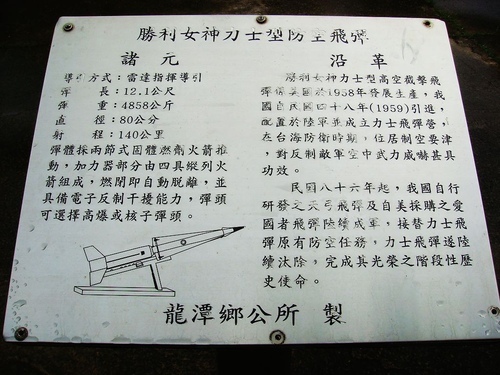 勝利女神力士型防空飛彈
諸元
導引方式：雷達指揮導引
彈長：12.1公尺
彈重：4858公斤
直徑：80公分
射程：140公里
彈體採兩節式固體燃劑火箭推
動，加力器部分由四具縱列火
箭組成，燃閉即自動脫離，並
具備電子反制干擾能力，彈頭
可選擇高爆或核子彈頭。
沿革
勝利女神力士型高空截擊飛
彈係美國於1958年發展生產，我
國自民國四十八年(1959)引進，
配置於陸軍並成立力士飛彈營，
在台海防衛時期，位居制空要津
，對反制敵軍空中武力威赫甚具
功效。
民國八十六年起，我國自行
研發之天弓飛彈及自美採購之愛
國者飛彈陸續成軍，接替力士飛
彈原有防空任務，力士飛彈遂陸
續汰除，完成其光榮之階段性歷
史使命。
龍潭鄉公所 製